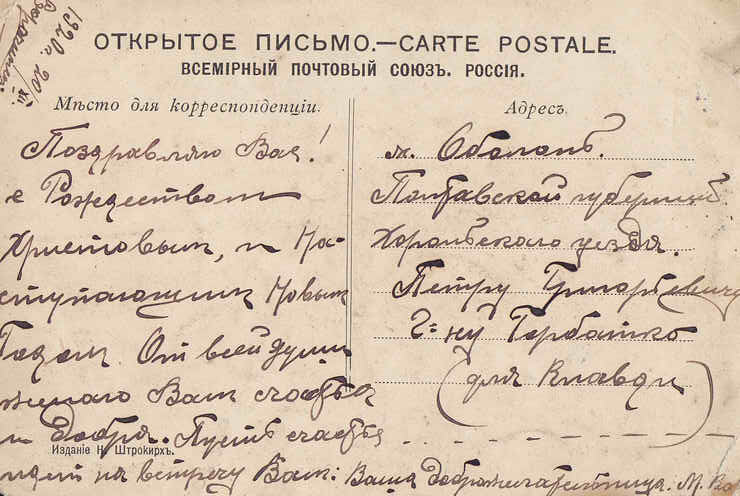 192 г. 20/XII.
ОТКРЫТОЕ ПИСЬМО.—CARTE POSTALE.
ВСЕМІРНЫЙ ПОЧТОВЫЙ СОЮЗЪ. РОССІЯ.
Мѣсто для корреспонденціи.
Поздравляю Вас!
с Рождеством
Христовым, и На-
ступающим Новым
Годом. От всей души
желаю Вам счастья
и добра. Пусть счастье
идет на встречу Вам: Ваша доброжелательница. М.
Изданіе Н. Штрокирхъ.
Адресъ.
м. Оболонь.
Полтавской губернии
Хорольского уезда.
Петру Григорьевичу
Г-ну Горбатко
(для Клавди)